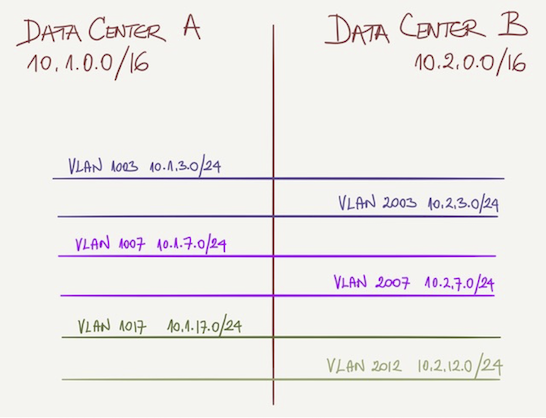 DATA CENTER A
10.1.0.0/16
DATA CENTER B
10.2.0.0/16
VLAN 1003 10.1.3.0/24
VLAN 2003 10.2.3.0/24
VLAN 1007 10.1.7.0/24
VLAN 2007 10.2.7.0/24
VLAN 1017 10.1.17.0/24
VLAN 2012 10.2.12.0/24